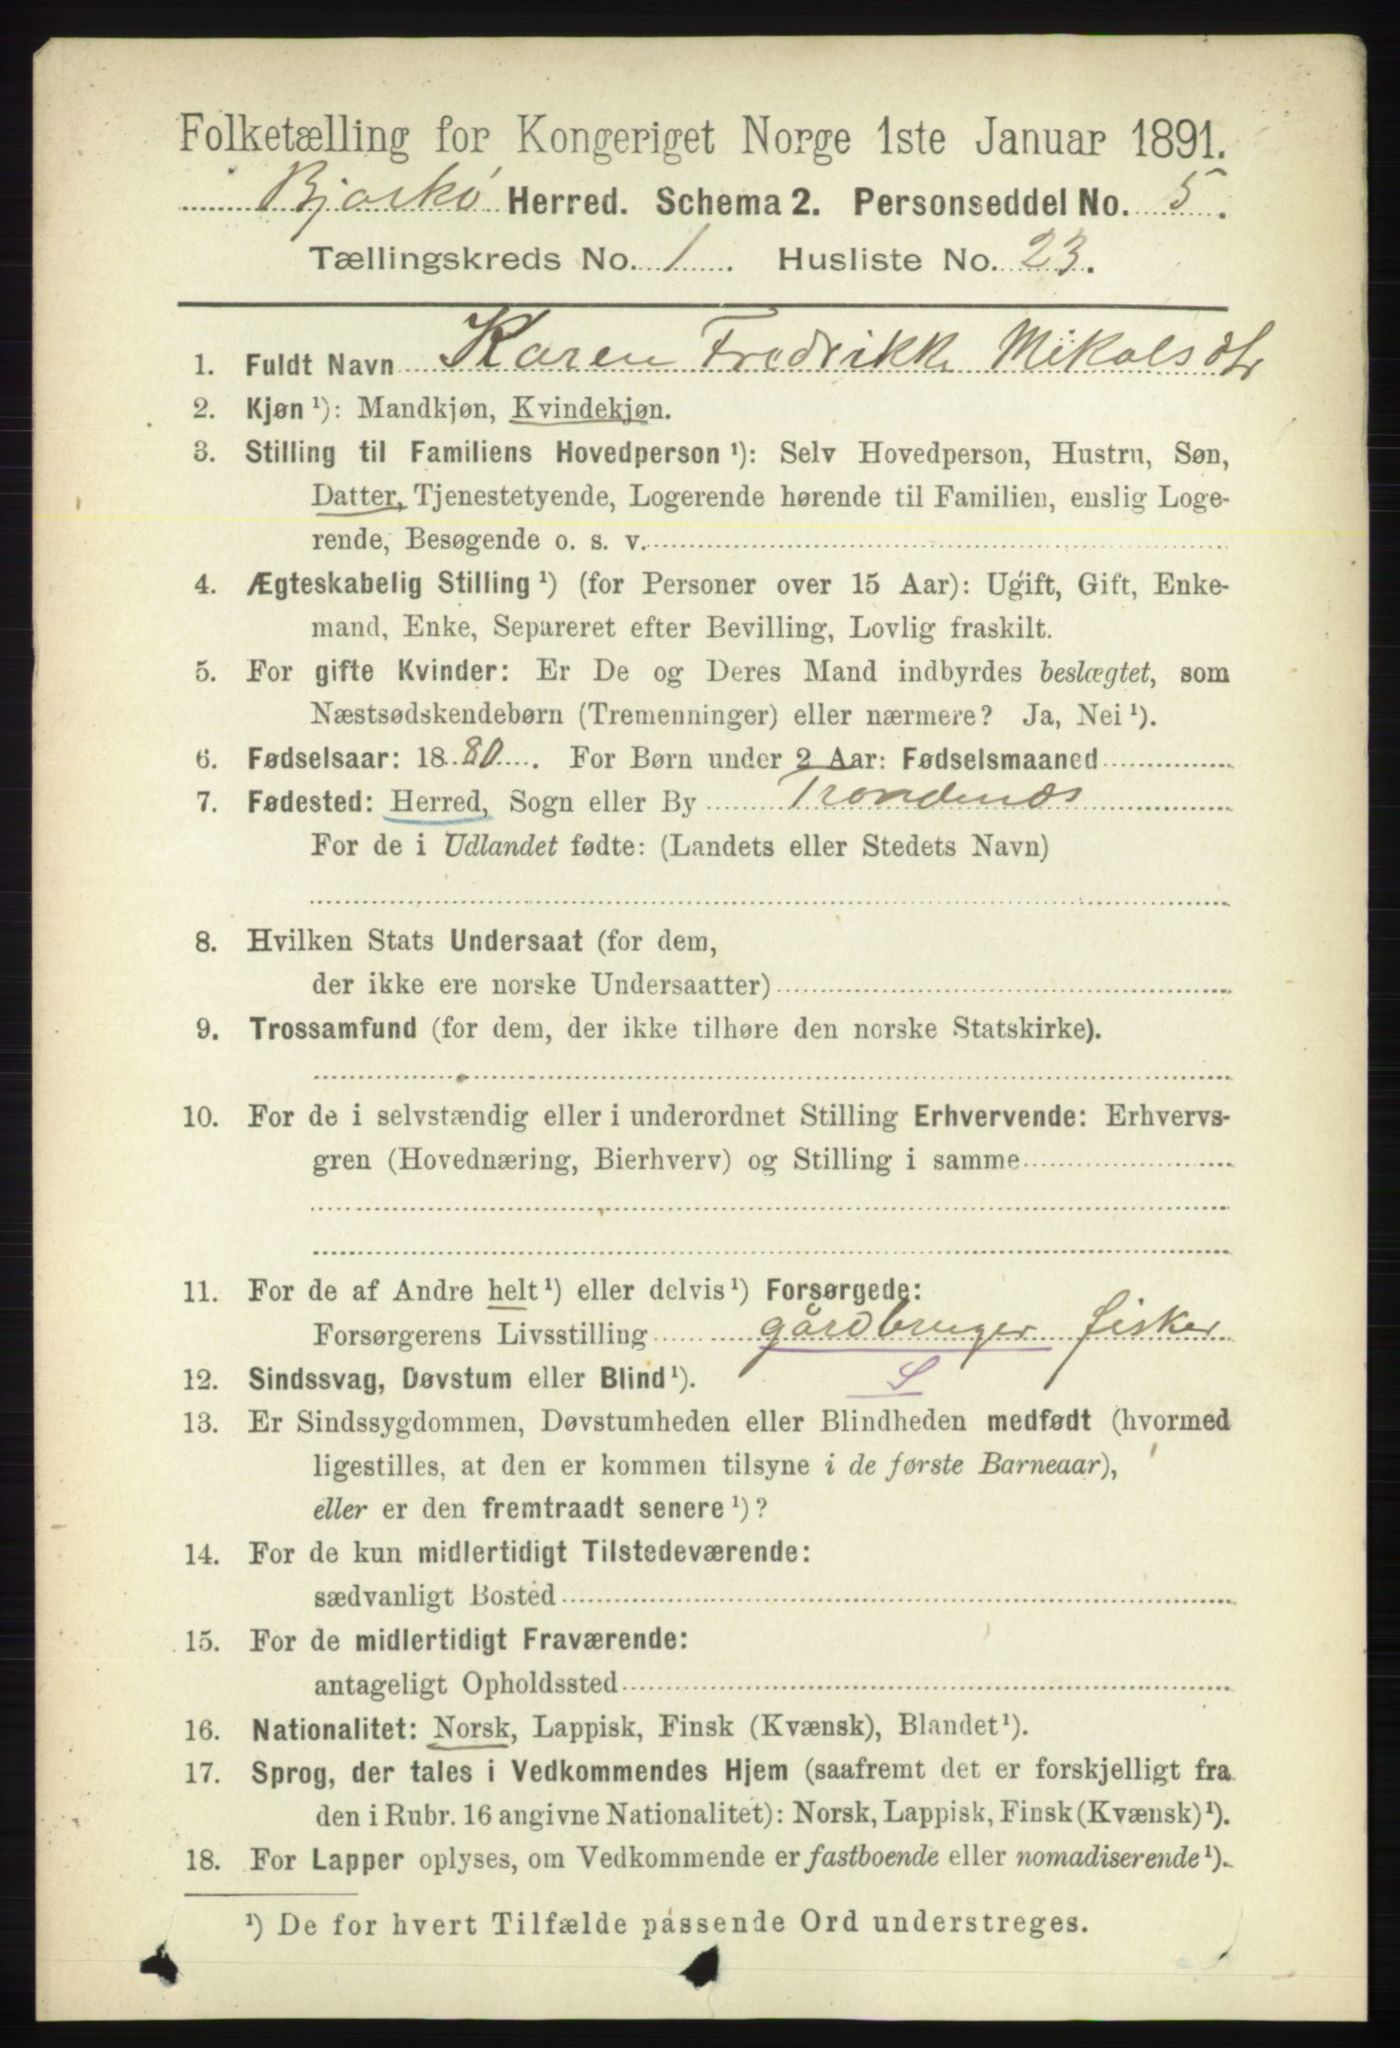 Folketælling for Kongeriget Norge 1ste Januar 1891.
Bjarkö Herred. Schema 2. Personseddel No. 5.
Tællingskreds No. 1. Husliste No. 23.
1. Fuldt Navn Karen Fredrikke Mikalsdtr
2. Kjøn ¹): Mandkjøn, Kvindekjøn.
3. Stilling til Familiens Hovedperson ¹): Selv Hovedperson, Hustru, Søn,
Datter, Tjenestetyende, Logerende hørende til Familien, enslig Loge-
rende, Besøgende o. s. v.
4. Ægteskabelig Stilling ¹) (for Personer over 15 Aar): Ugift, Gift, Enke-
mand, Enke, Separeret efter Bevilling, Lovlig fraskilt.
5. For gifte Kvinder: Er De og Deres Mand indbyrdes beslægtet, som
Næstsødskendebørn (Tremenninger) eller nærmere? Ja, Nei ¹).
6. Fødselsaar: 1880. For Børn under 2 Aar: Fødselsmaaned
7. Fødested: Herred, Sogn eller By Trondenæs
For de i Udlandet fødte: (Landets eller Stedets Navn)
8. Hvilken Stats Undersaat (for dem,
der ikke ere norske Undersaatter)
9. Trossamfund (for dem, der ikke tilhøre den norske Statskirke).
10. For de i selvstændig eller i underordnet Stilling Erhvervende: Erhvervs-
gren (Hovednæring, Bierhverv) og Stilling i samme
11. For de af Andre helt ¹) eller delvis ¹) Forsørgede:
Forsørgerens Livsstilling gårdbruger fisker
12. Sindssvag, Døvstum eller Blind ¹). S
13. Er Sindssygdommen, Døvstumheden eller Blindheden medfødt (hvormed
ligestilles, at den er kommen tilsyne i de første Barneaar),
eller er den fremtraadt senere ¹)?
14. For de kun midlertidigt Tilstedeværende:
sædvanligt Bosted
15. For de midlertidigt Fraværende:
antageligt Opholdssted
16. Nationalitet: Norsk, Lappisk, Finsk (Kvænsk), Blandet ¹).
17. Sprog, der tales i Vedkommendes Hjem (saafremt det er forskjelligt fra
den i Rubr. 16 angivne Nationalitet): Norsk, Lappisk, Finsk (Kvænsk) ¹).
18. For Lapper oplyses, om Vedkommende er fastboende eller nomadiserende ¹).
¹) De for hvert Tilfælde passende Ord understreges.